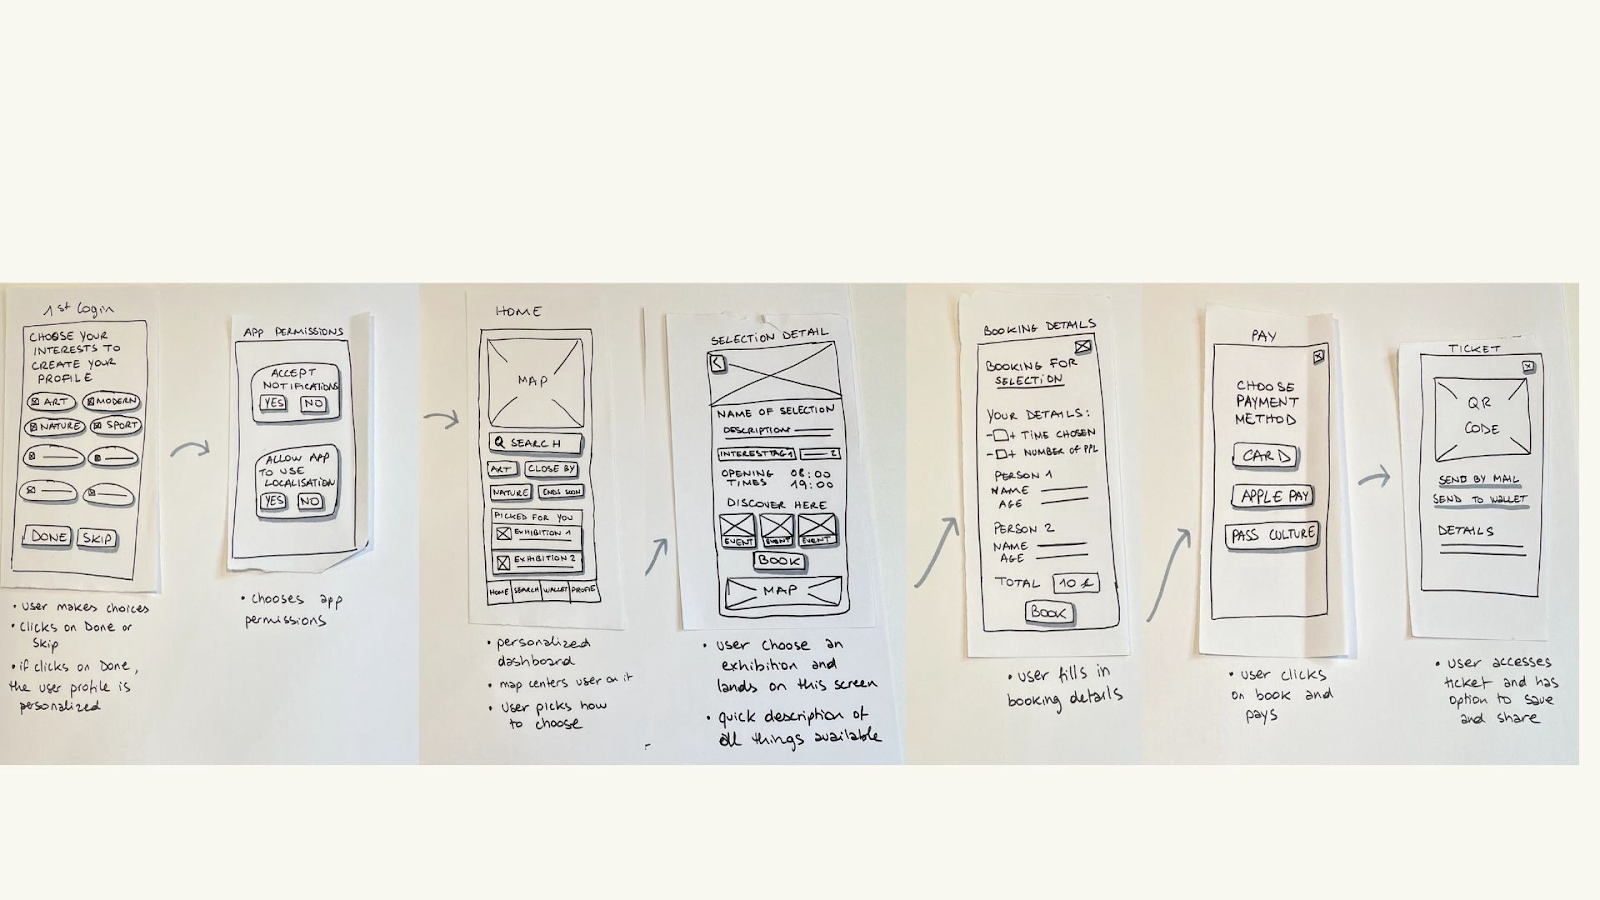 1st Login
CHOOSE YOUR
INTERESTS TO
CREATE YOUR
PROFILE
ART
MODERN
NATURE
SPORT
DONE
SKIP
• user makes choices
• clicks on Done or
Skip
• if clicks on Done,
the user profile is
personalized
APP PERMISSIONS
ACCEPT
NOTIFICATIONS
YES
NO
ALLOW APP
TO USE
LOCALISATION
YES
NO
• chooses app
permissions
HOME
MAP
SEARCH
ART
CLOSE BY
NATURE
ENDS SOON
PICKED FOR YOU
EXHIBITION 1
EXHIBITION 2
HOME
SEARCH
WALLET
PROFILE
• personalized
dashboard
• map centers user on it
• user picks how
to choose
SELECTION DETAIL
<
NAME OF SELECTION
DESCRIPTION
INTEREST TAG 1
2
OPENING 08:00
TIMES 19:00
DISCOVER HERE
EVENT
EVENT
EVENT
BOOK
MAP
• user choose an
exhibition and
lands on this screen
• quick description of
all things available
BOOKING DETAILS
BOOKING FOR
SELECTION
YOUR DETAILS:
- + TIME CHOSEN
- + NUMBER OF PPL
PERSON 1
NAME
AGE
PERSON 2
NAME
AGE
TOTAL 10 €
BOOK
• user fills in
booking details
PAY
CHOOSE
PAYMENT
METHOD
CARD
APPLE PAY
PASS CULTURE
• user clicks
on book and
pays
TICKET
QR
CODE
SEND BY MAIL
SEND TO WALLET
DETAILS
• user accesses
ticket and has
option to save
and share